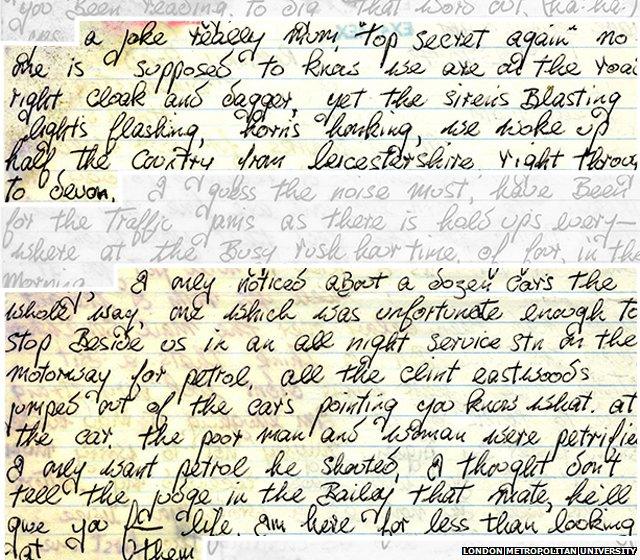 you Been reading to dig that word out, ha-ha-
a joke really mum, "top secret again" no
one is supposed to know we are on the roa
right cloak and dagger, yet the sirens Blasting
lights flashing, horns honking, we woke up
half the Country from Leicestershire right throu
to Devon. I guess the noise must, have Been
for the Traffic jams as there is hold ups every-
where at the Busy rush hour time, of four, in the
Morning. I only noticed about a dozen cars the
whole way, one which was unfortunate enough to
stop Beside us in an all night service stn on the
motorway for petrol, all the clint eastwoods
jumped out of the cars pointing you know what. at
the car. the poor man and woman were petrifie
I only want petrol he shouted, I thought don't
tell the judge in the Bailey that mate, he'll
give you life. am here for less than looking
at them
LONDON METROPOLITAN UNIVERSITY